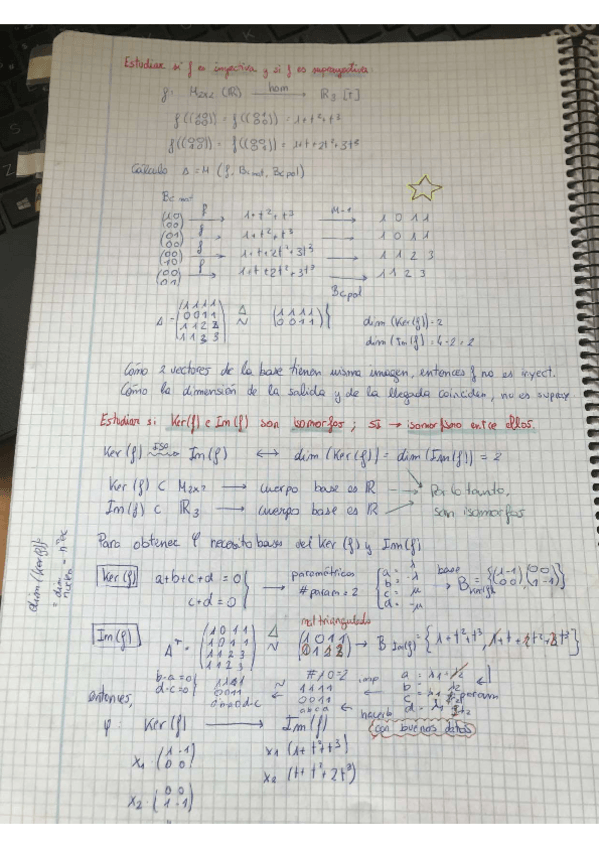 Estudiar si f es inyectiva y si f es suprayectiva.
f: M2x2 (R) hom→ R3 [t]
f((10/00)) = f((01/00)) = 1+t²+t³
f((00/10)) = f((00/01)) = 1+t+2t²+3t³
Cálculo A = M (f, Bcmat, Bcpol)
Bcmat
(10/00) f→ 1+t²+t³ M-1→ 1 0 1 1
(01/00) f→ 1+t²+t³ → 1 0 1 1
(00/10) f→ 1+t+2t²+3t³ → 1 1 2 3
(00/01) f→ 1+t+2t²+3t³ → 1 1 2 3
Bcpol
A = (1111/0011/1122/1133) ∆~ (1111/0011)
dim (Ker(f)) = 2
dim (Im(f)) = 4-2 = 2
Como 2 vectores de la base tienen misma imagen, entonces f no es inyect.
Como la dimensión de la salida y de la llegada coinciden, no es supray.
Estudiar si Ker(f) e Im(f) son isomorfos; SI → isomorfismo entre ellos.
Ker(f) ISO Im(f) ↔ dim (Ker(f)) = dim (Im(f)) = 2
Ker(f) ⊂ M2x2 → cuerpo base es R
Im(f) ⊂ R3 → cuerpo base es R
Por lo tanto,
son isomorfos
Para obtener φ necesito bases del Ker(f) y Im(f)
dim(Ker(f)) =
Ker(f) a+b+c+d = 0
c+d = 0
paramétricos
#param = 2
a = λ
b = -λ
c = μ
d = -μ
base
B Ker(f) = {(1-1/00),(00/1-1)}
mat triangulada
Im(f) Aᵗ = (1011/1011/1123/1123) ∆~ (1011/0112) → B Im(f) = {1+t²+t³,
b-a=0
d-c=0
1111
0011
#10=2
1111
0011
abcd
imp
param
hacerlo
con buenos datos
entonces,
φ: Ker(f) → Im(f)
x1 (1-1/00) x1 (1+t²+t³)
x2 (00/1-1) x2 (t+t²+2t³)